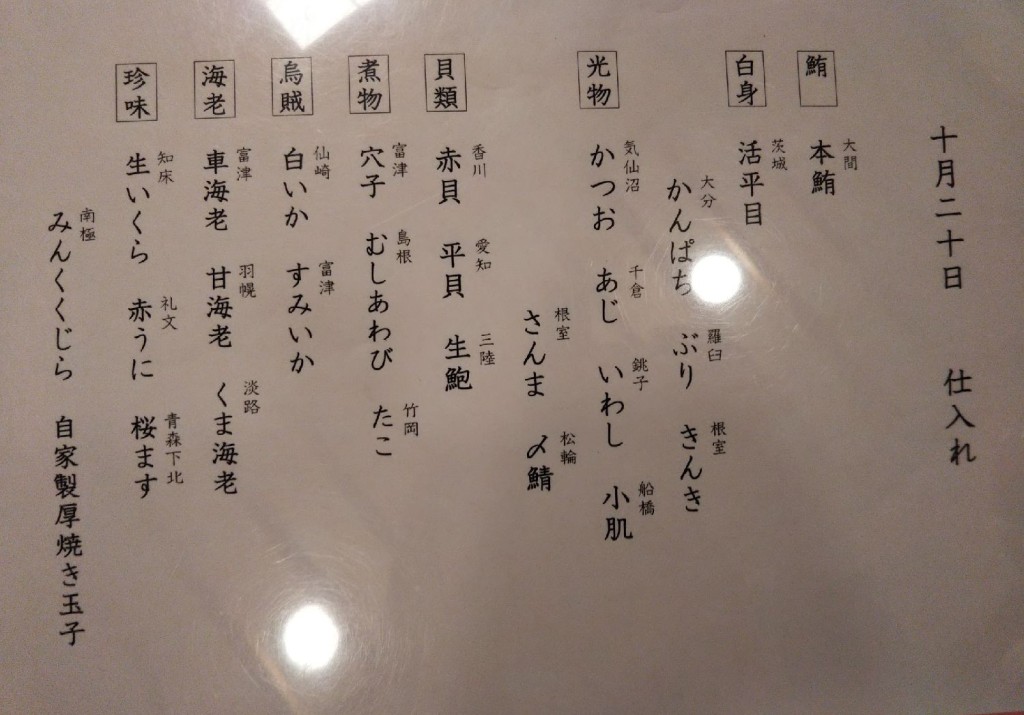 十月二十日 仕入れ
鮪
大間
本鮪
白身
茨城
活平目
大分 羅臼 根室
かんぱち ぶり きんき
光物
気仙沼 千倉 銚子 船橋
かつお あじ いわし 小肌
根室 松輪
さんま 〆鯖
貝類
香川 愛知 三陸
赤貝 平貝 生鮑
煮物
富津 島根 竹岡
穴子 むしあわび たこ
烏賊
仙崎 富津
白いか すみいか
海老
富津 羽幌 淡路
車海老 甘海老 くま海老
珍味
知床 礼文 青森下北
生いくら 赤うに 桜ます
南極
みんくくじら 自家製厚焼き玉子